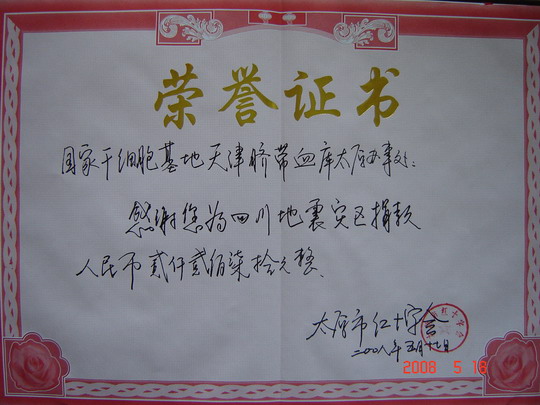 荣誉证书
国家干细胞基地天津脐带血库太原办事处:
感谢您为四川地震灾区捐款
人民币贰仟贰佰柒拾元整.
太原市红十字会
二00八年五月十七日
2008 5 18